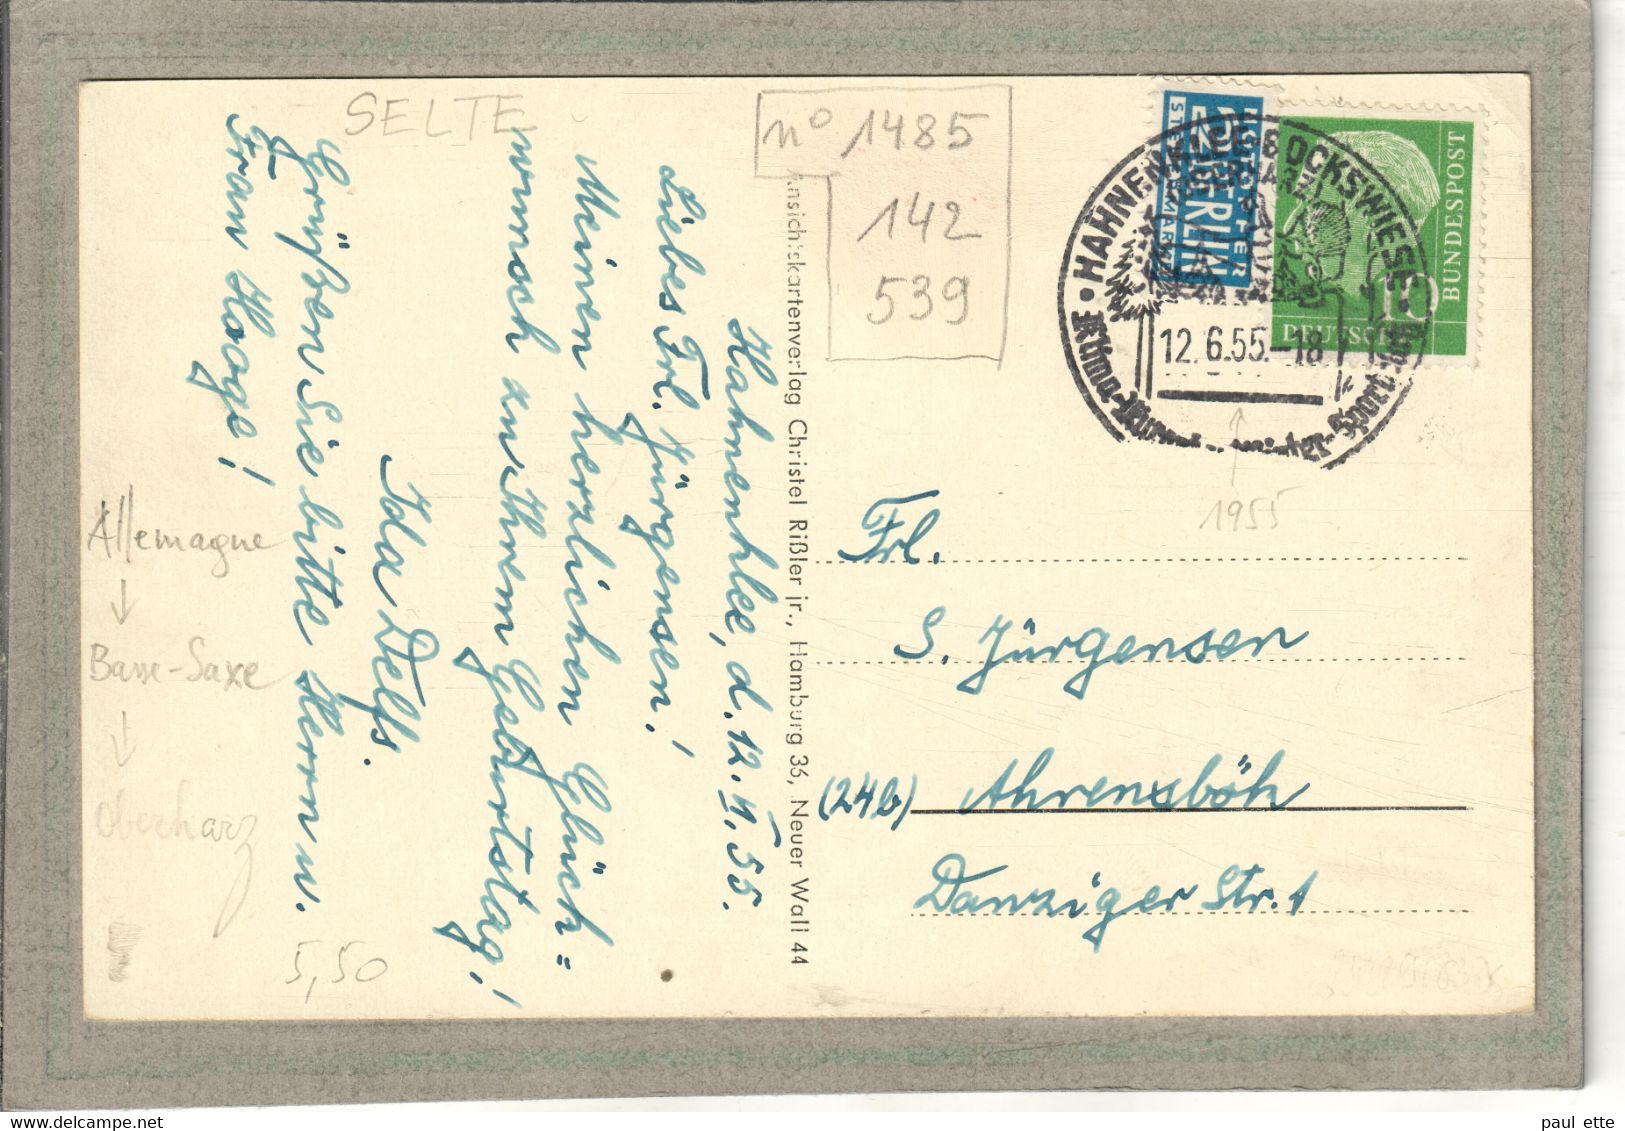 SELTE
nº 1485
142
539
Hahnenklee, d. 12.6.55.
Liebes Frl. Jürgensen!
Meinen herzlichen Glück=
wunsch zu Ihrem Geburtstag!
Ida Delfs.
Grüßen Sie bitte Herrn u.
Frau Hooge!
Allemagne
↓
Basse-Saxe
↓
Oberharz
5,50
Ansichtskartenverlag Christel Rißler jr., Hamburg 36, Neuer Wall 44
NOTOPFER
2 BERLIN
STEUERMARKE
DEUTSCHE
BUNDESPOST
10
• HAHNENKLEE-BOCKSWIESE •
(OBERHARZ)
12.6.55.-18
1955
Frl.
S. Jürgensen
(24b) Ahrensbök
Danziger Str. 1
paul ette